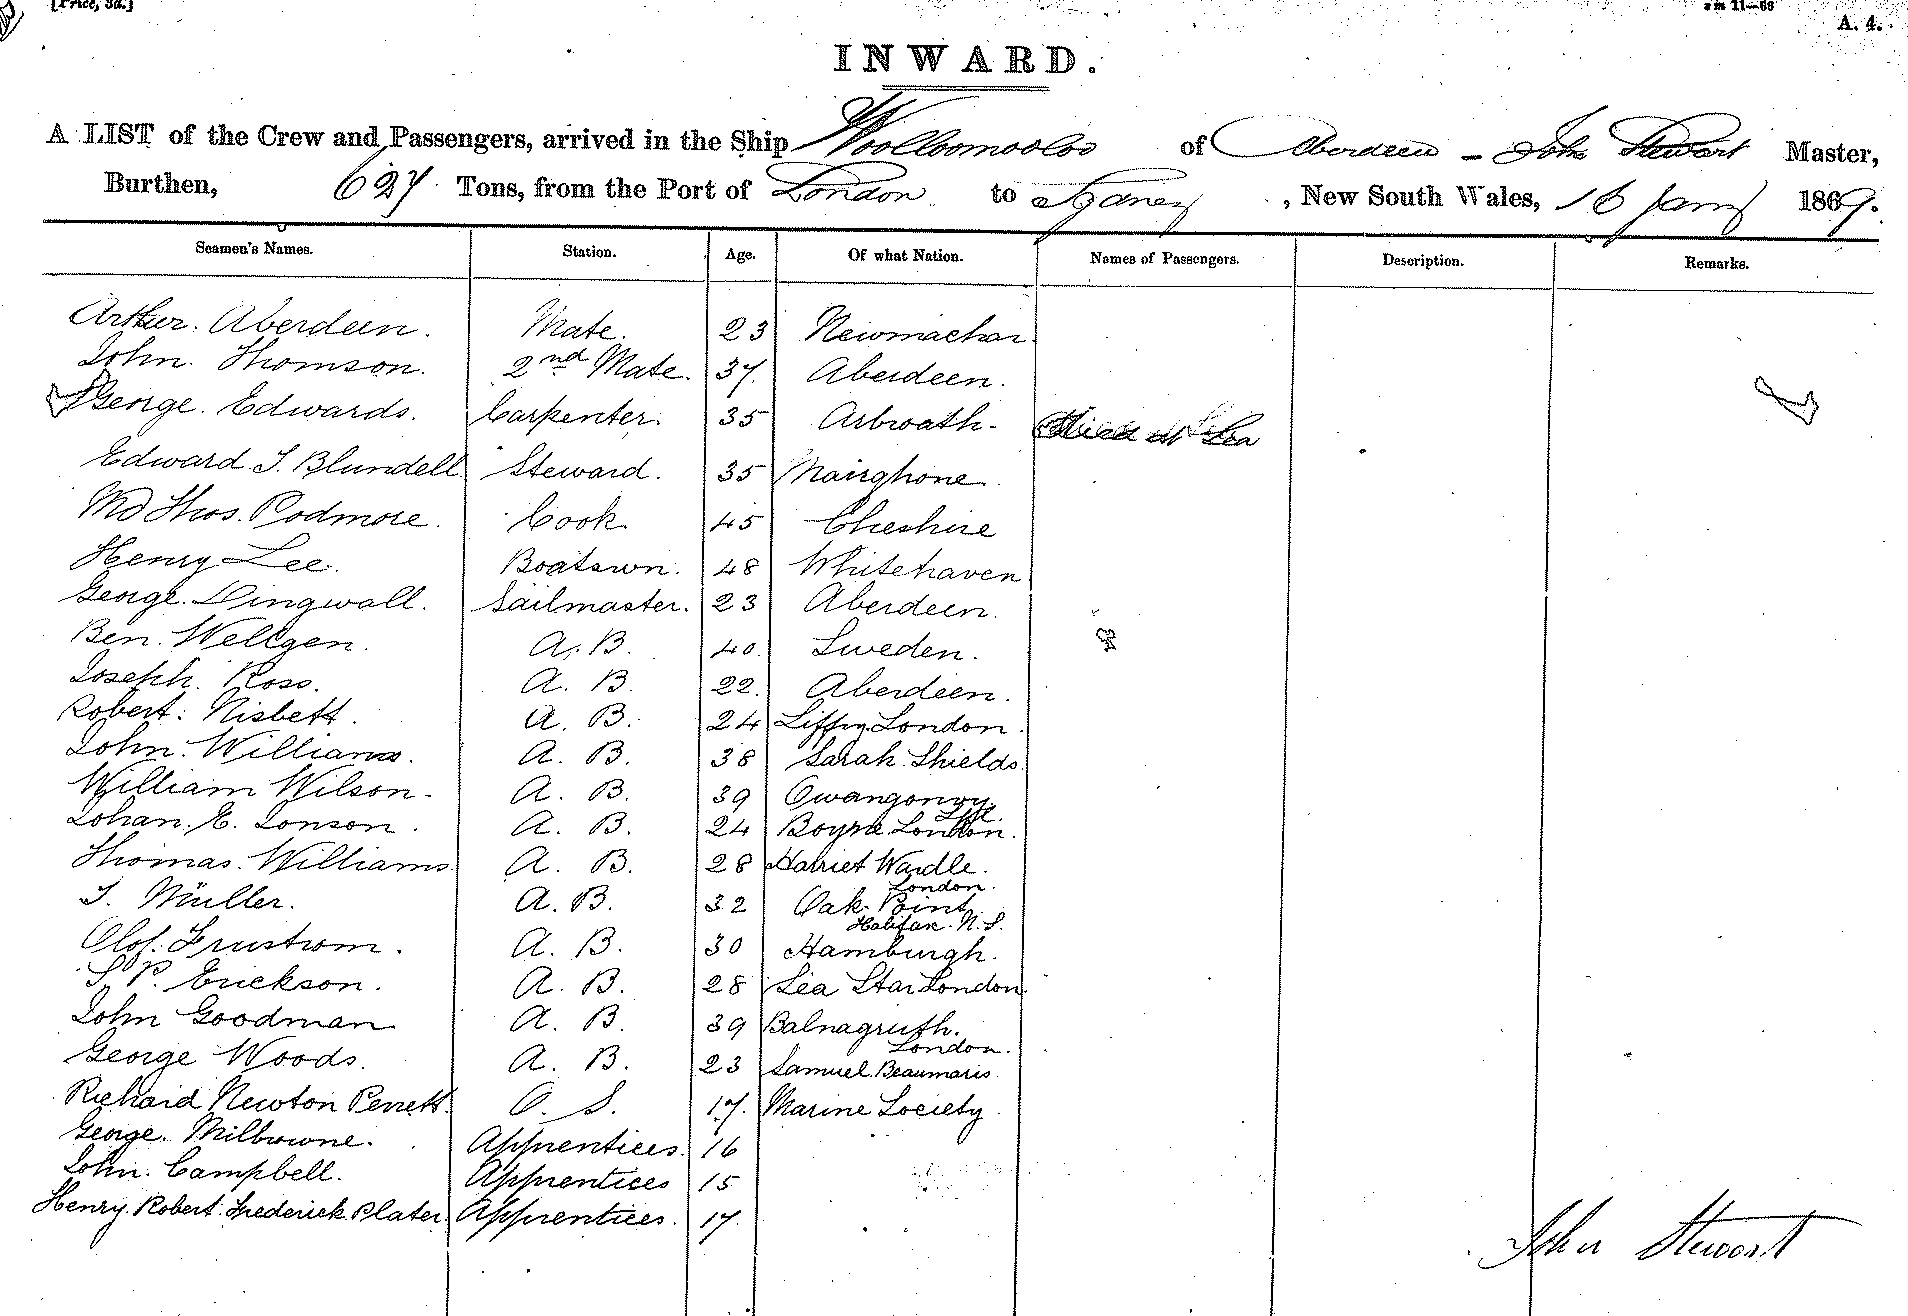 [Price, 3d.]
A. 4.
INWARD.
A LIST of the Crew and Passengers, arrived in the Ship Woolloomooloo of Aberdeen - John Stewart Master,
Burthen, 627 Tons, from the Port of London to Sydney, New South Wales, 16 Jany 1869.
Seamen's Names. Station. Age. Of what Nation. Names of Passengers. Description. Remarks.
Arthur. Aberdeen. Mate. 23 Newmachar.
John. Thomson. 2nd Mate. 37. Aberdeen.
George. Edwards. Carpenter. 35 Arbroath- at Sea
Edward J. Blundell Steward. 35 Nairghone.
Thos. Podmore. Cook 45 Cheshire
Henry Lee. Boatswn. 48 Whitehaven
George. Dingwall. Sailmaster. 23 Aberdeen.
Ben. Wellgen. A. B. 40. Sweden.
Joseph. Ross. A. B. 22. Aberdeen.
Robert. Nisbett. A. B. 24 Liffey London.
John. Williams. A. B. 38 Sarah Shields
William Wilson. A. B. 39
Johan. E. Jonson. A. B. 24 Boyne London.
Thomas. Williams A. B. 28 Harriet Wardle
London.
J. Müller. A. B. 32 Oak Point
Halifax. N. S.
Olof. Frustrom. A. B. 30 Hamburgh.
S. P. Erickson. A. B. 28 Sea Star London
John Goodman A. B. 39 Balnagruth.
London.
George Woods. A. B. 23 Samuel. Beaumaris
Richard Newton Perrett. O. S. 17. Marine Society
George. Milbrowne. Apprentices. 16
John. Campbell. Apprentices 15
Henry. Robert. Frederick. Plater. Apprentices. 17.
John Stewart